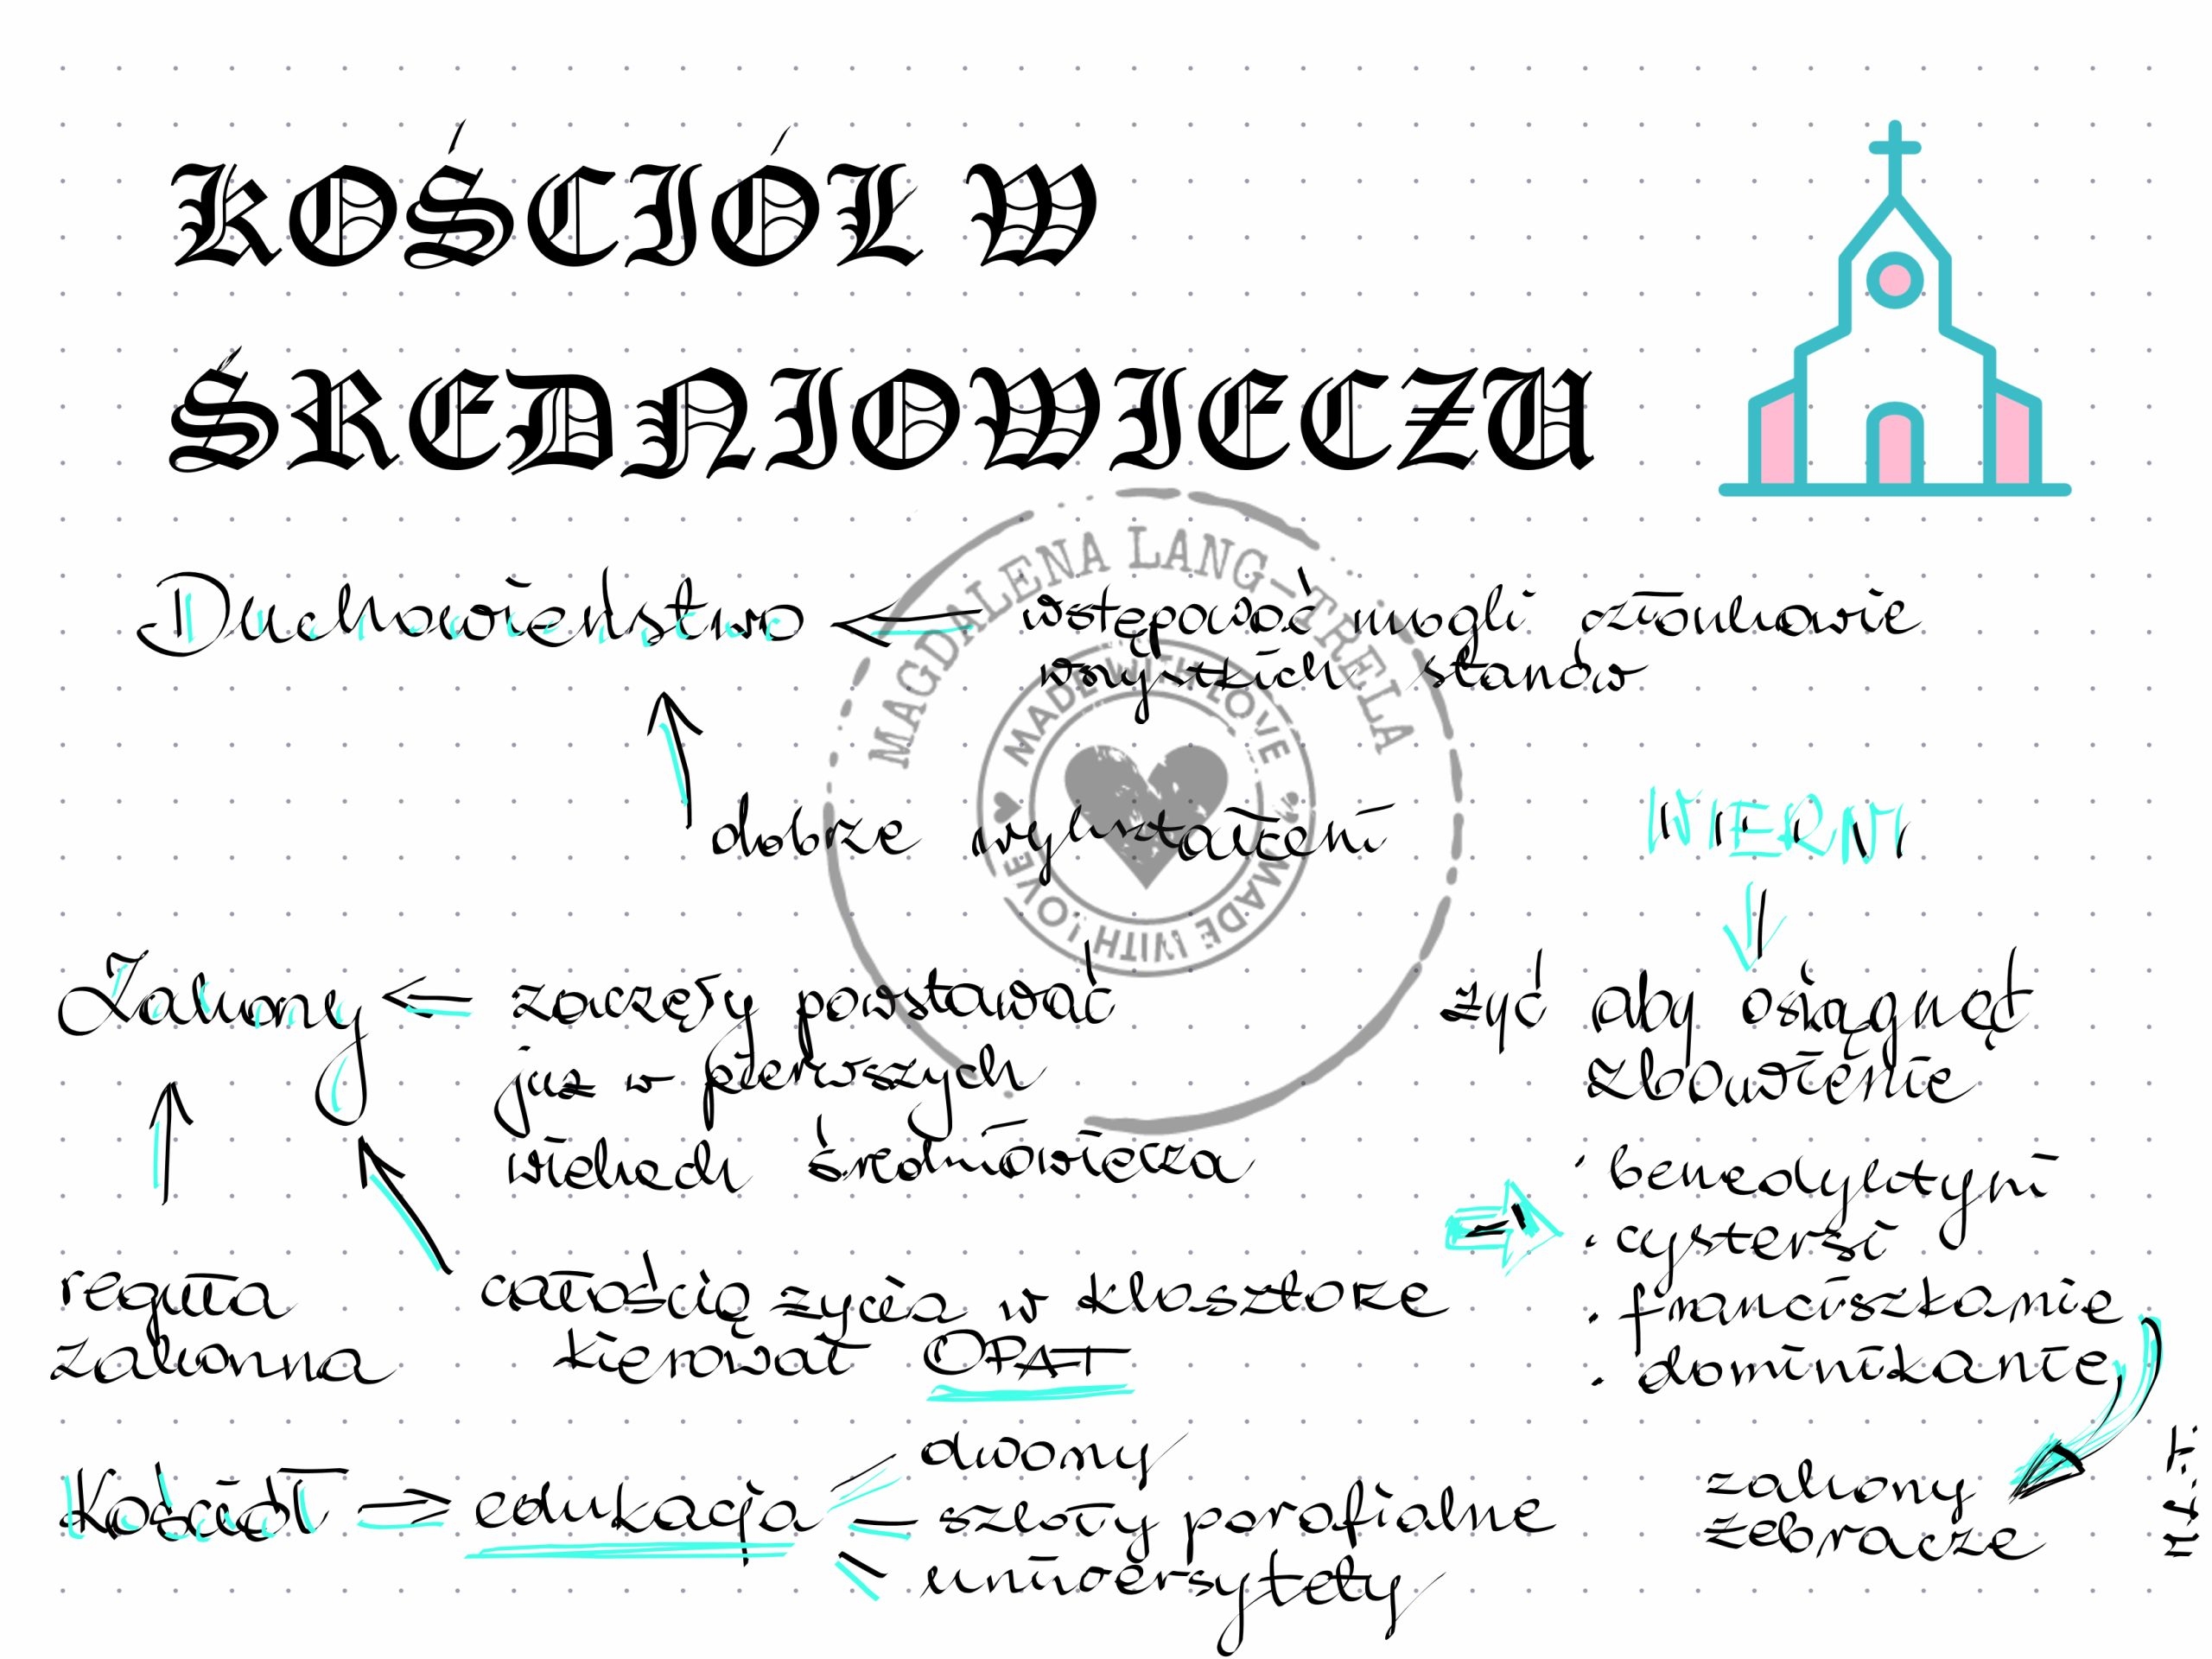 KOŚCIÓŁ W
ŚREDNIOWIECZU
MAGDALENA LANG-TRELA
MADE WITH LOVE
MADE WITH LOVE
Duchowieństwo ← wstępować mogli członkowie
wszystkich stanów
dobrze wykształceni
WIERNI
Zakony ← zaczęły powstawać
już w pierwszych
wiekach średniowiecza
żyć aby osiągnąć
zbawienie
reguła
zakonna
całością życia w klasztorze
kierował OPAT
• benedyktyni
• cystersi
• franciszkanie
• dominikanie
zakony
żebracze
Kościół ⇒ edukacja
dwory
szkoły parafialne
uniwersytety